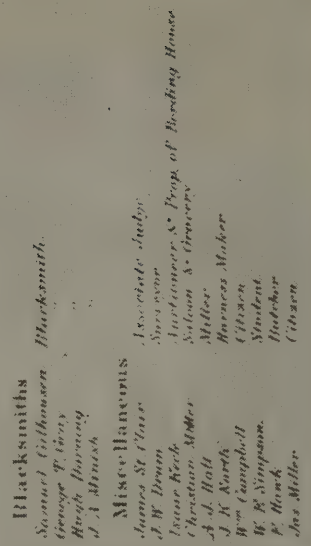 Blacksmiths
Samuel Cilhousen Blacksmith.
George T. Gray " "
Hugh " "
J A Munsh " "
Miscellaneous
James St Clair Associate Judge
J. W. Drum Surveyor
Isaac Keck Auctioneer & Prop. of Bording House
Christian Miller Saloon & Grocery
A. J. Holt Miller
J. K. North Harness Maker
Wm Campbell Citizen
W. K. Simpson. Student.
F. Hawk Butcher
Jas Miller Citizen